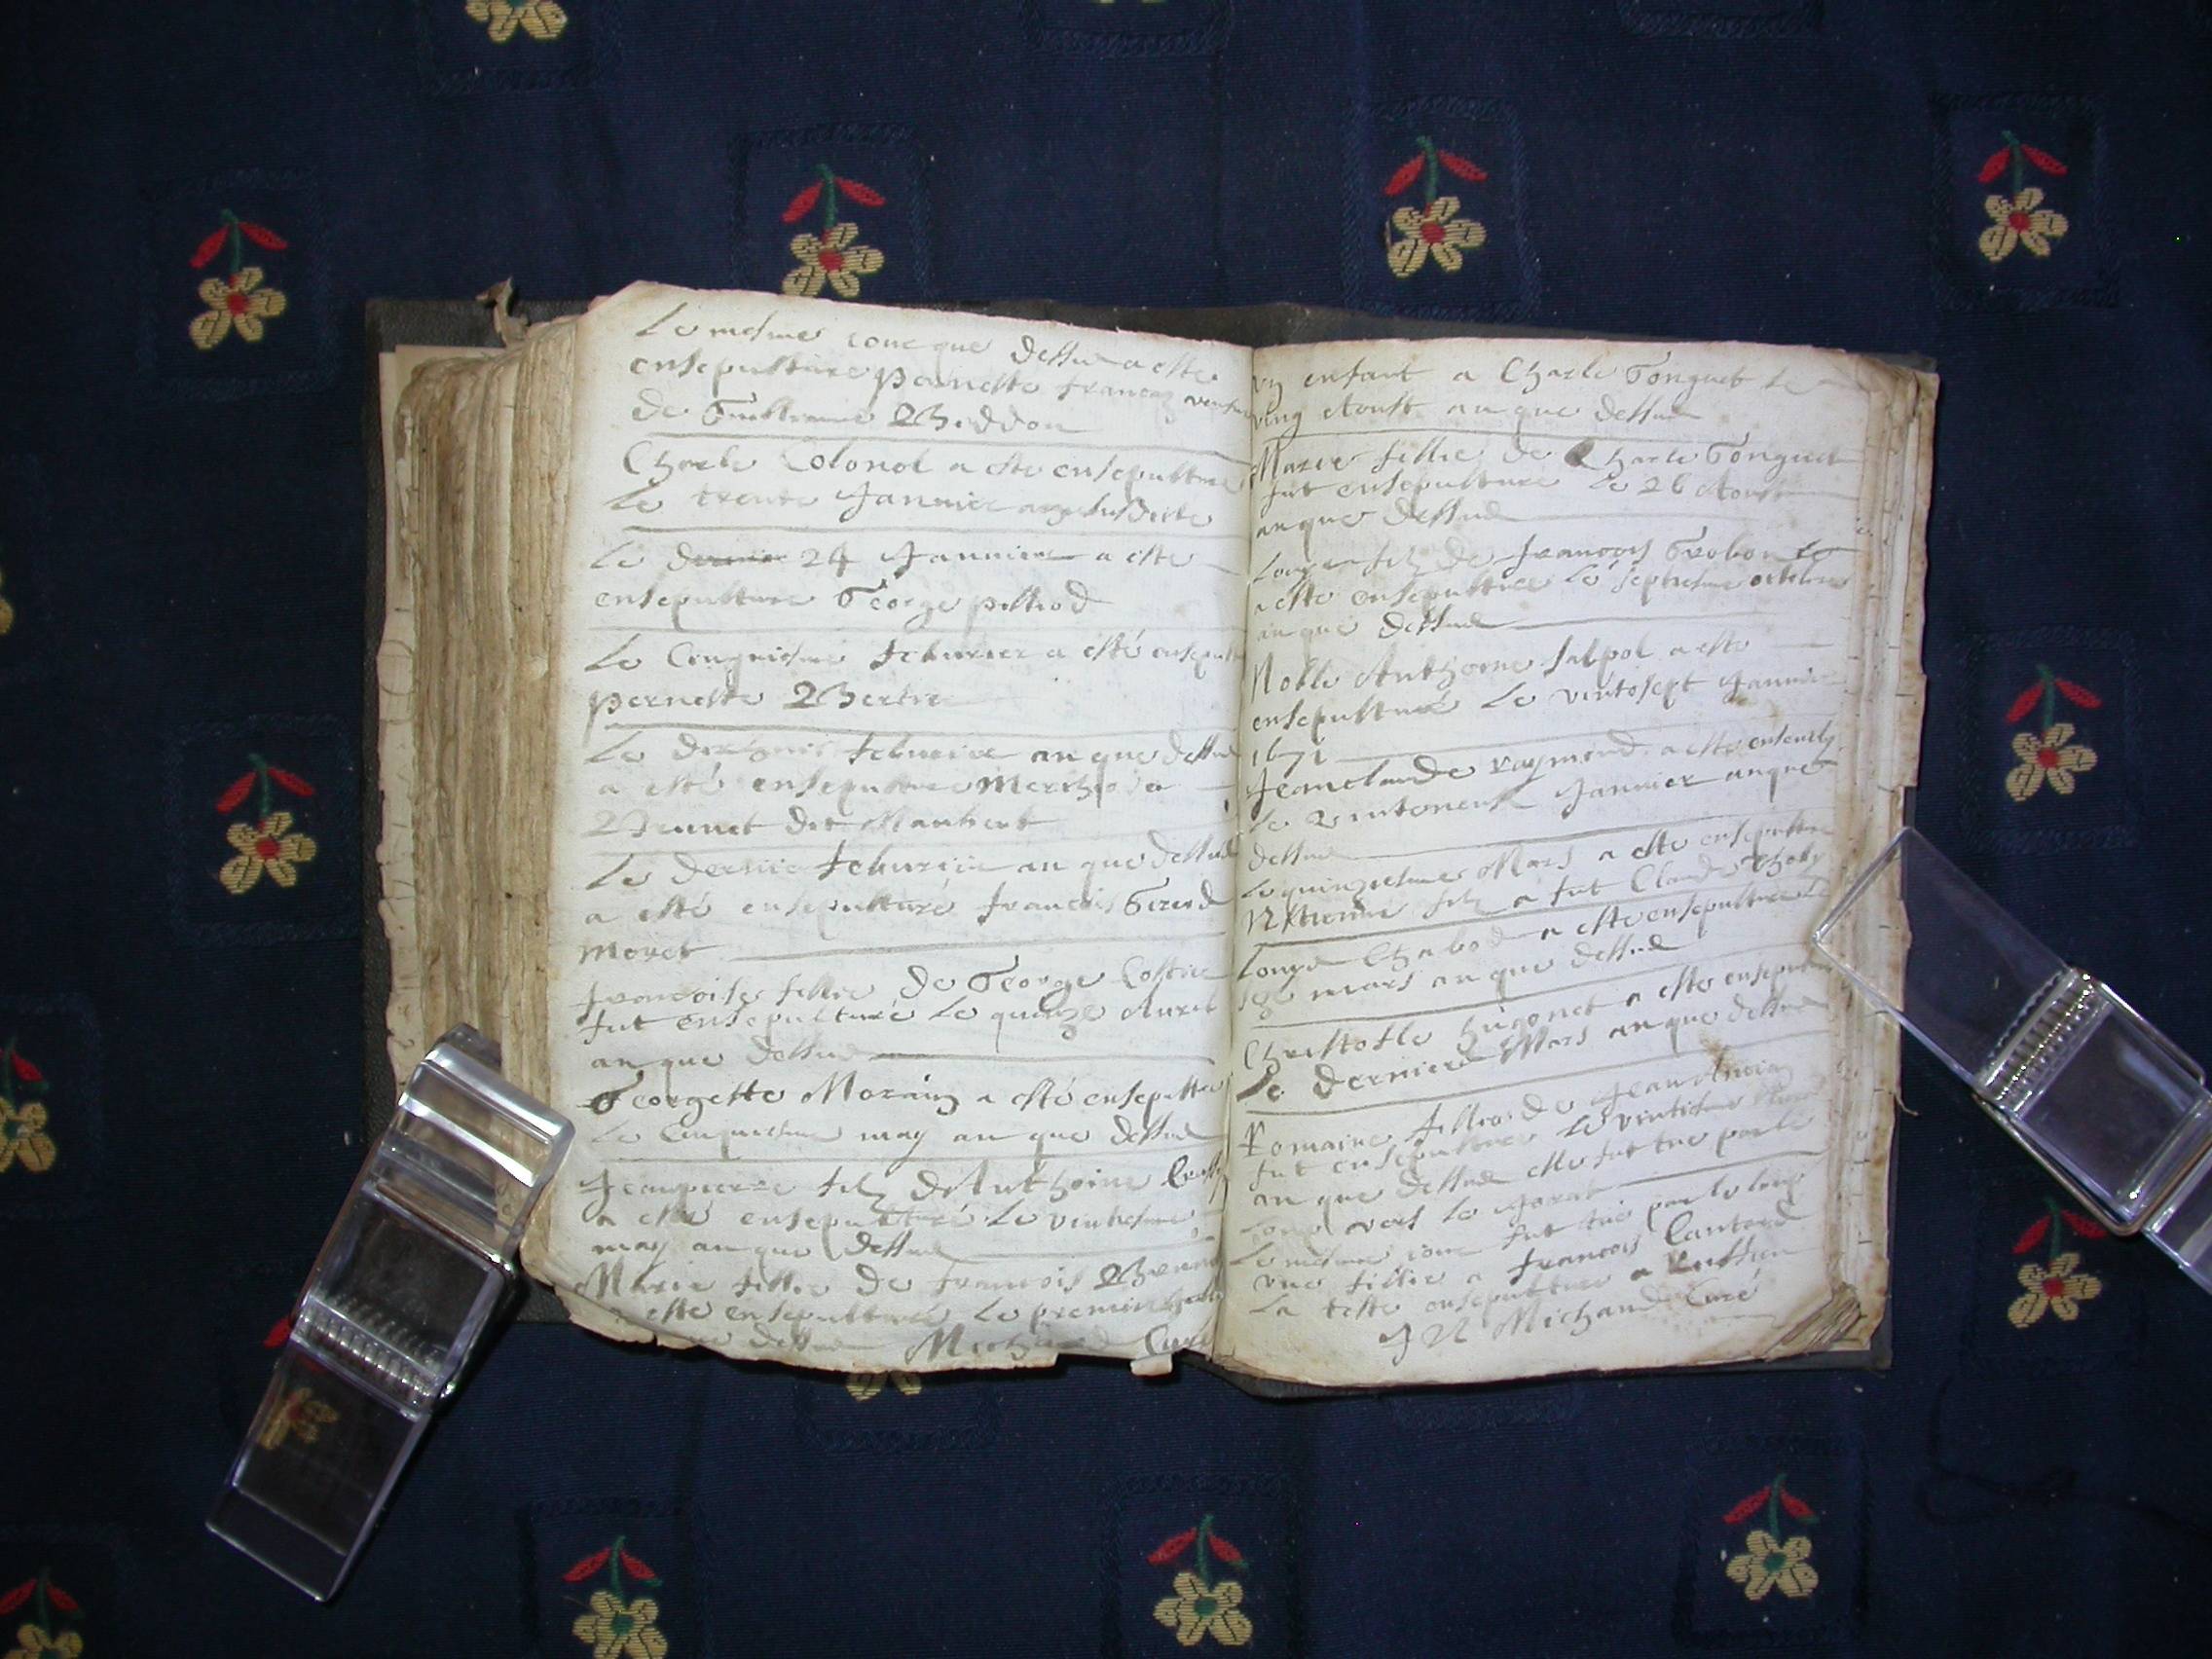 Le mesme iour que dessus a este
ensepulturé pernette francoz
de Guillaume Bieddon
Charle Colonol a este ensepulture
Le trente Januier an susdict
Le dernier 24 Januier a este
ensepulture George pilliod
Le Cinquiesme feburier a esté ensepult
pernette Bertie
Le feburier an que dessus
a esté ensepulture
Brunet dit Maubert
Le dernier feburier an que dessus
a esté ensepulturé francois Girerd
Moret
francoise fillie de George Costier
fut ensepulturé Le quinze Auril
an que dessus
Georgette Morain a esté ensepultu
Le Cinquiesme may an que dessus
Jeanpierre filz dAnthoine
a esté ensepulturé Le vintiesme
may an que dessus
Marie fillie de francois
a este ensepulturé Le premier
dessus Michaud Curé
vn enfant a Charle Gonguet Le
ving Aoust an que dessus
Marie fillie de Charle Gonguet
fut ensepulture Le 26 Aoust
an que dessus
Louys filz de francois Grobon Le
a esté ensepulture Le septiesme octobre
an que dessus
Noble Anthoine Salpol a este
ensepulturé Le vintesept Januier
1671
Jeanclaude raymond a este
Le vinteneuf Januier an que
dessus
Le quinziesme Mars a este ensepulture
filz a fut Claude
Louyse Chabod a este ensepulture Le
mars an que dessus
Christofle hugonet a este ensepultu
Le dernier Mars an que dessus
Romaine fillie de Jean
fut ensepulturee Le vintiesme
an que dessus elle fut tue par le
Loup vers le
Le mesme iour fut tué par le loup
vne fillie a francois
La teste ensepulture a
Michaud Curé